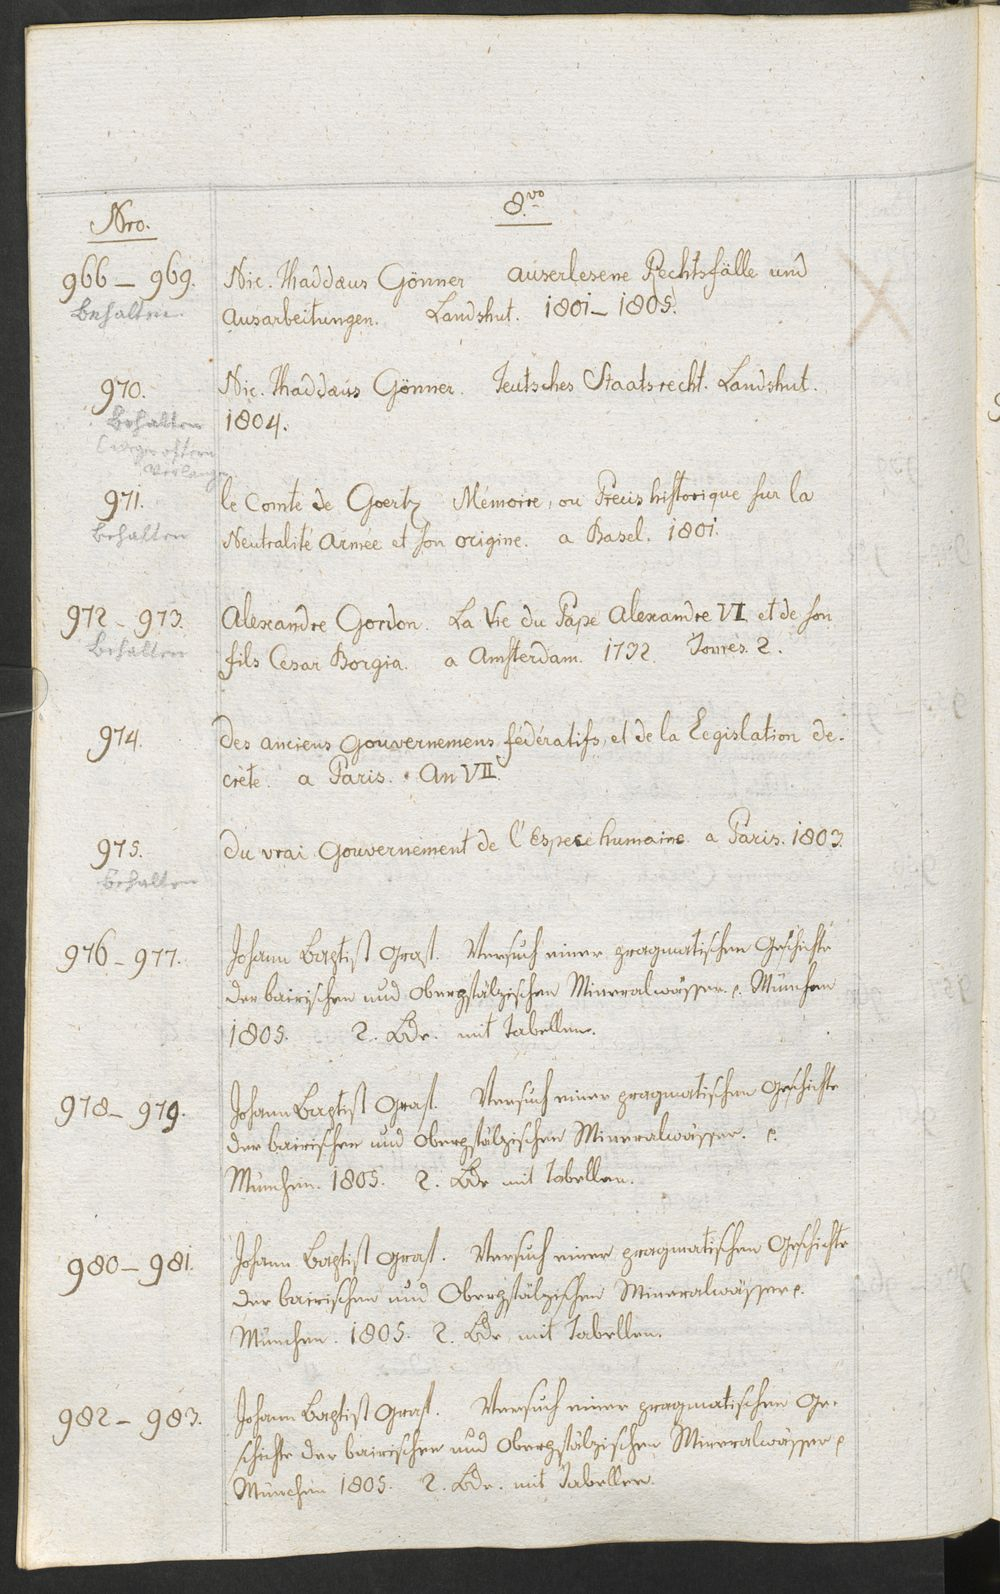 8.vo
Nro.
966 – 969. Nic. Thaddaeus Gönner auserlesene Rechtsfälle und
Behalten. Ausarbeitungen. Landshut. 1801 – 1805.
970. Nic. Thaddaeus Gönner. Teutsches Staatsrecht. Landshut.
Behalten 1804.
(wegen öftern
Verlangen
971. le Comte de Goertz Mémoire, ou Precis historique sur la
Behalten Neutralité Armée et son origine. a Basel. 1801.
972 – 973. Alexandre Gordon. La Vie du Pape Alexandre VI et de son
Behalten fils Cesar Borgia. a Amsterdam. 1732. Tomes. 2.
974. Des anciens Gouvernemens fédératifs, et de la Legislation de-
crète. a Paris. An VII.
975. Du vrai Gouvernement de l'Espece humaine a Paris. 1803.
Behalten
976 – 977. Johann Baptist Graf. Versuch einer pragmatischen Geschichte
der bairischen und Oberpfälzischen Mineralwässer. München
1805. 2. Bde. mit Tabellen.
978 – 979. Johann Baptist Graf. Versuch einer pragmatischen Geschichte
der bairischen und Oberpfälzischen Mineralwässer.
München. 1805. 2. Bde mit Tabellen.
980 – 981. Johann Baptist Graf. Versuch einer pragmatischen Geschichte
der bairischen und Oberpfälzischen Mineralwässer
München. 1805. 2. Bde mit Tabellen.
982 – 983. Johann Baptist Graf. Versuch einer pragmatischen Ge-
schichte der bairischen und Oberpfälzischen Mineralwässer
München 1805. 2. Bde. mit Tabellen.